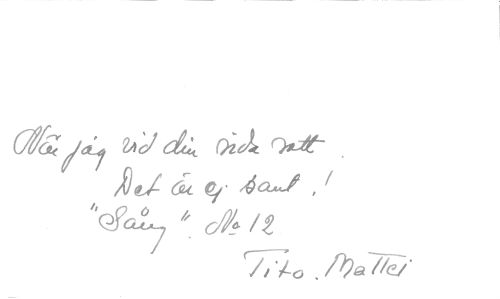 När jag vid din sida satt.
Det är ej sant.!
"Sång". No 12
Tito. Mattei